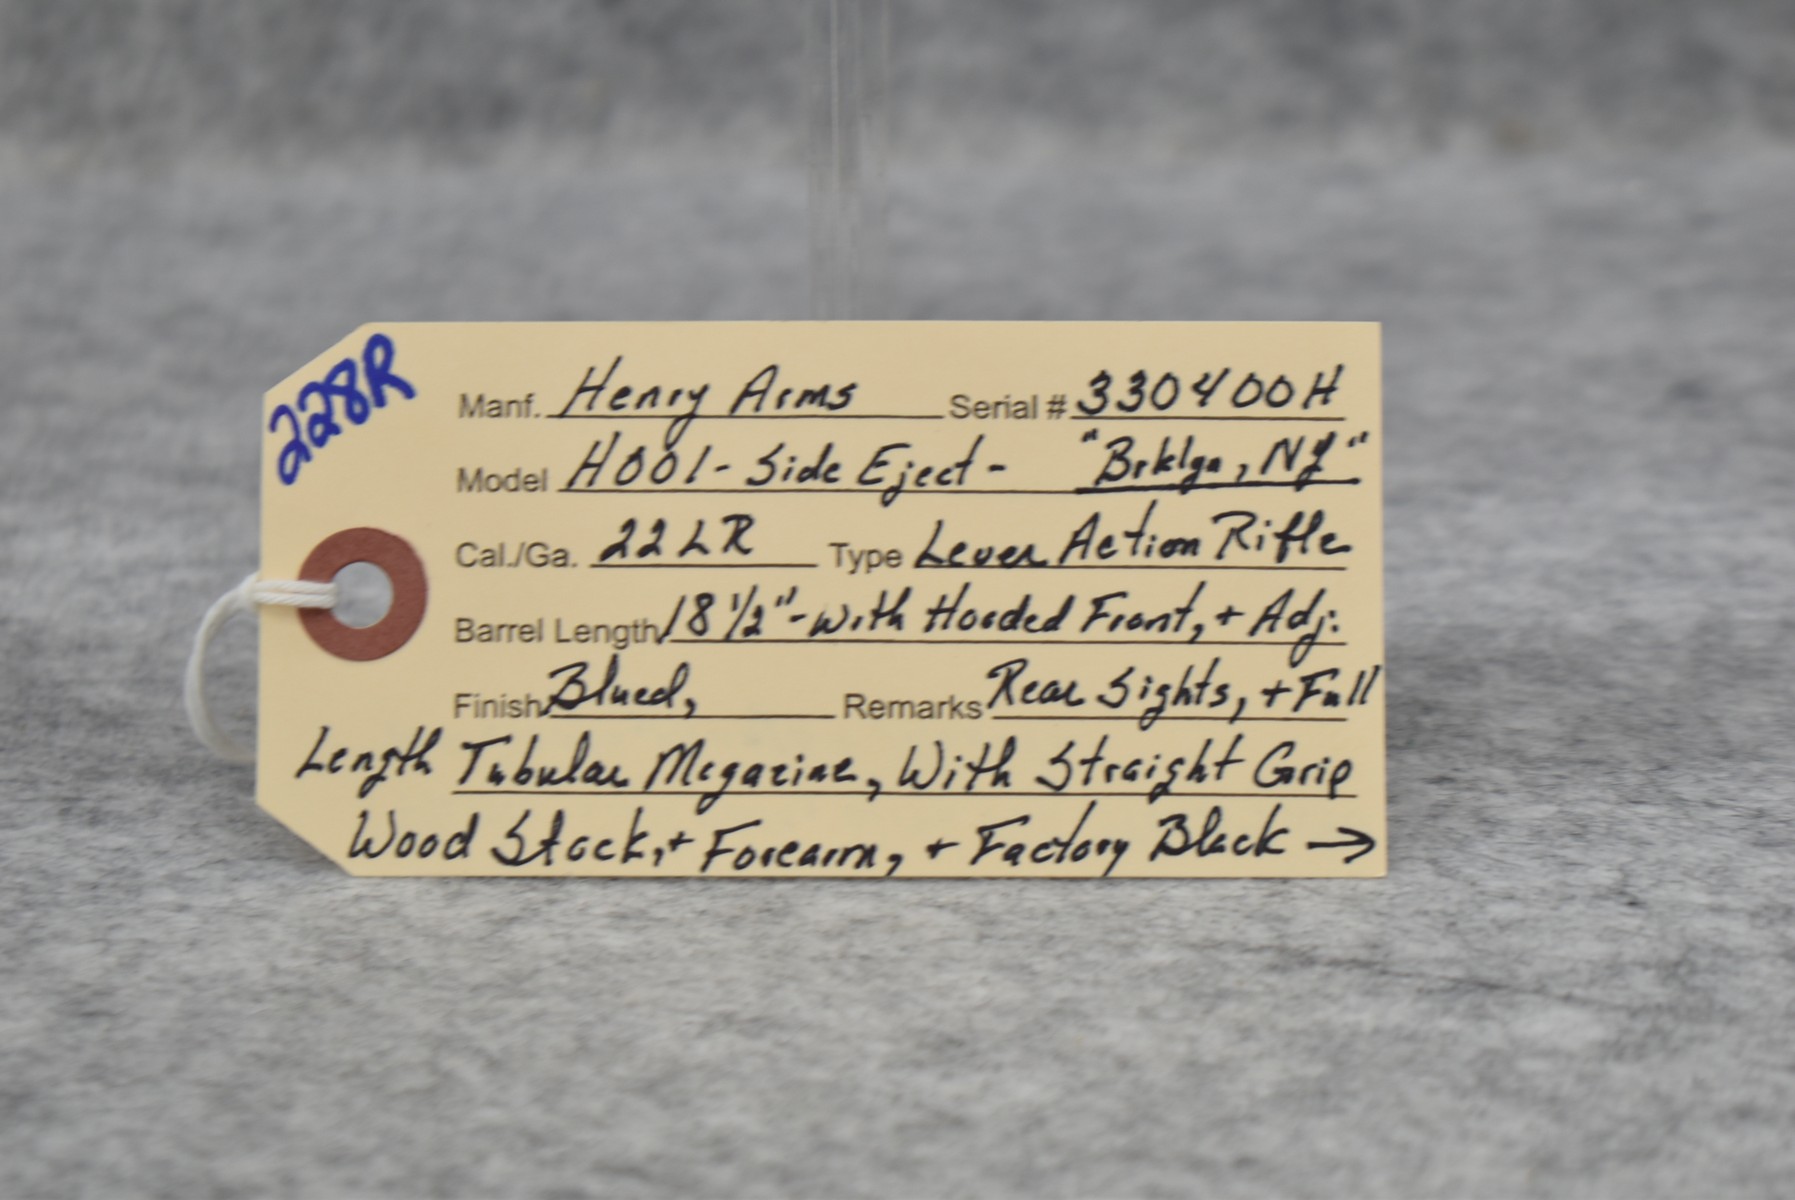 228R
Manf. Henry Arms Serial # 330400H
Model H001 - Side Eject - "Brklyn, NY"
Cal./Ga. 22LR Type Lever Action Rifle
Barrel Length 18 1/2" - with Hooded Front, + Adj.
Finish Blued, Remarks Rear Sights, + Full
Length Tubular Magazine, With Straight Grip
Wood Stock, + Forearm, + Factory Black →